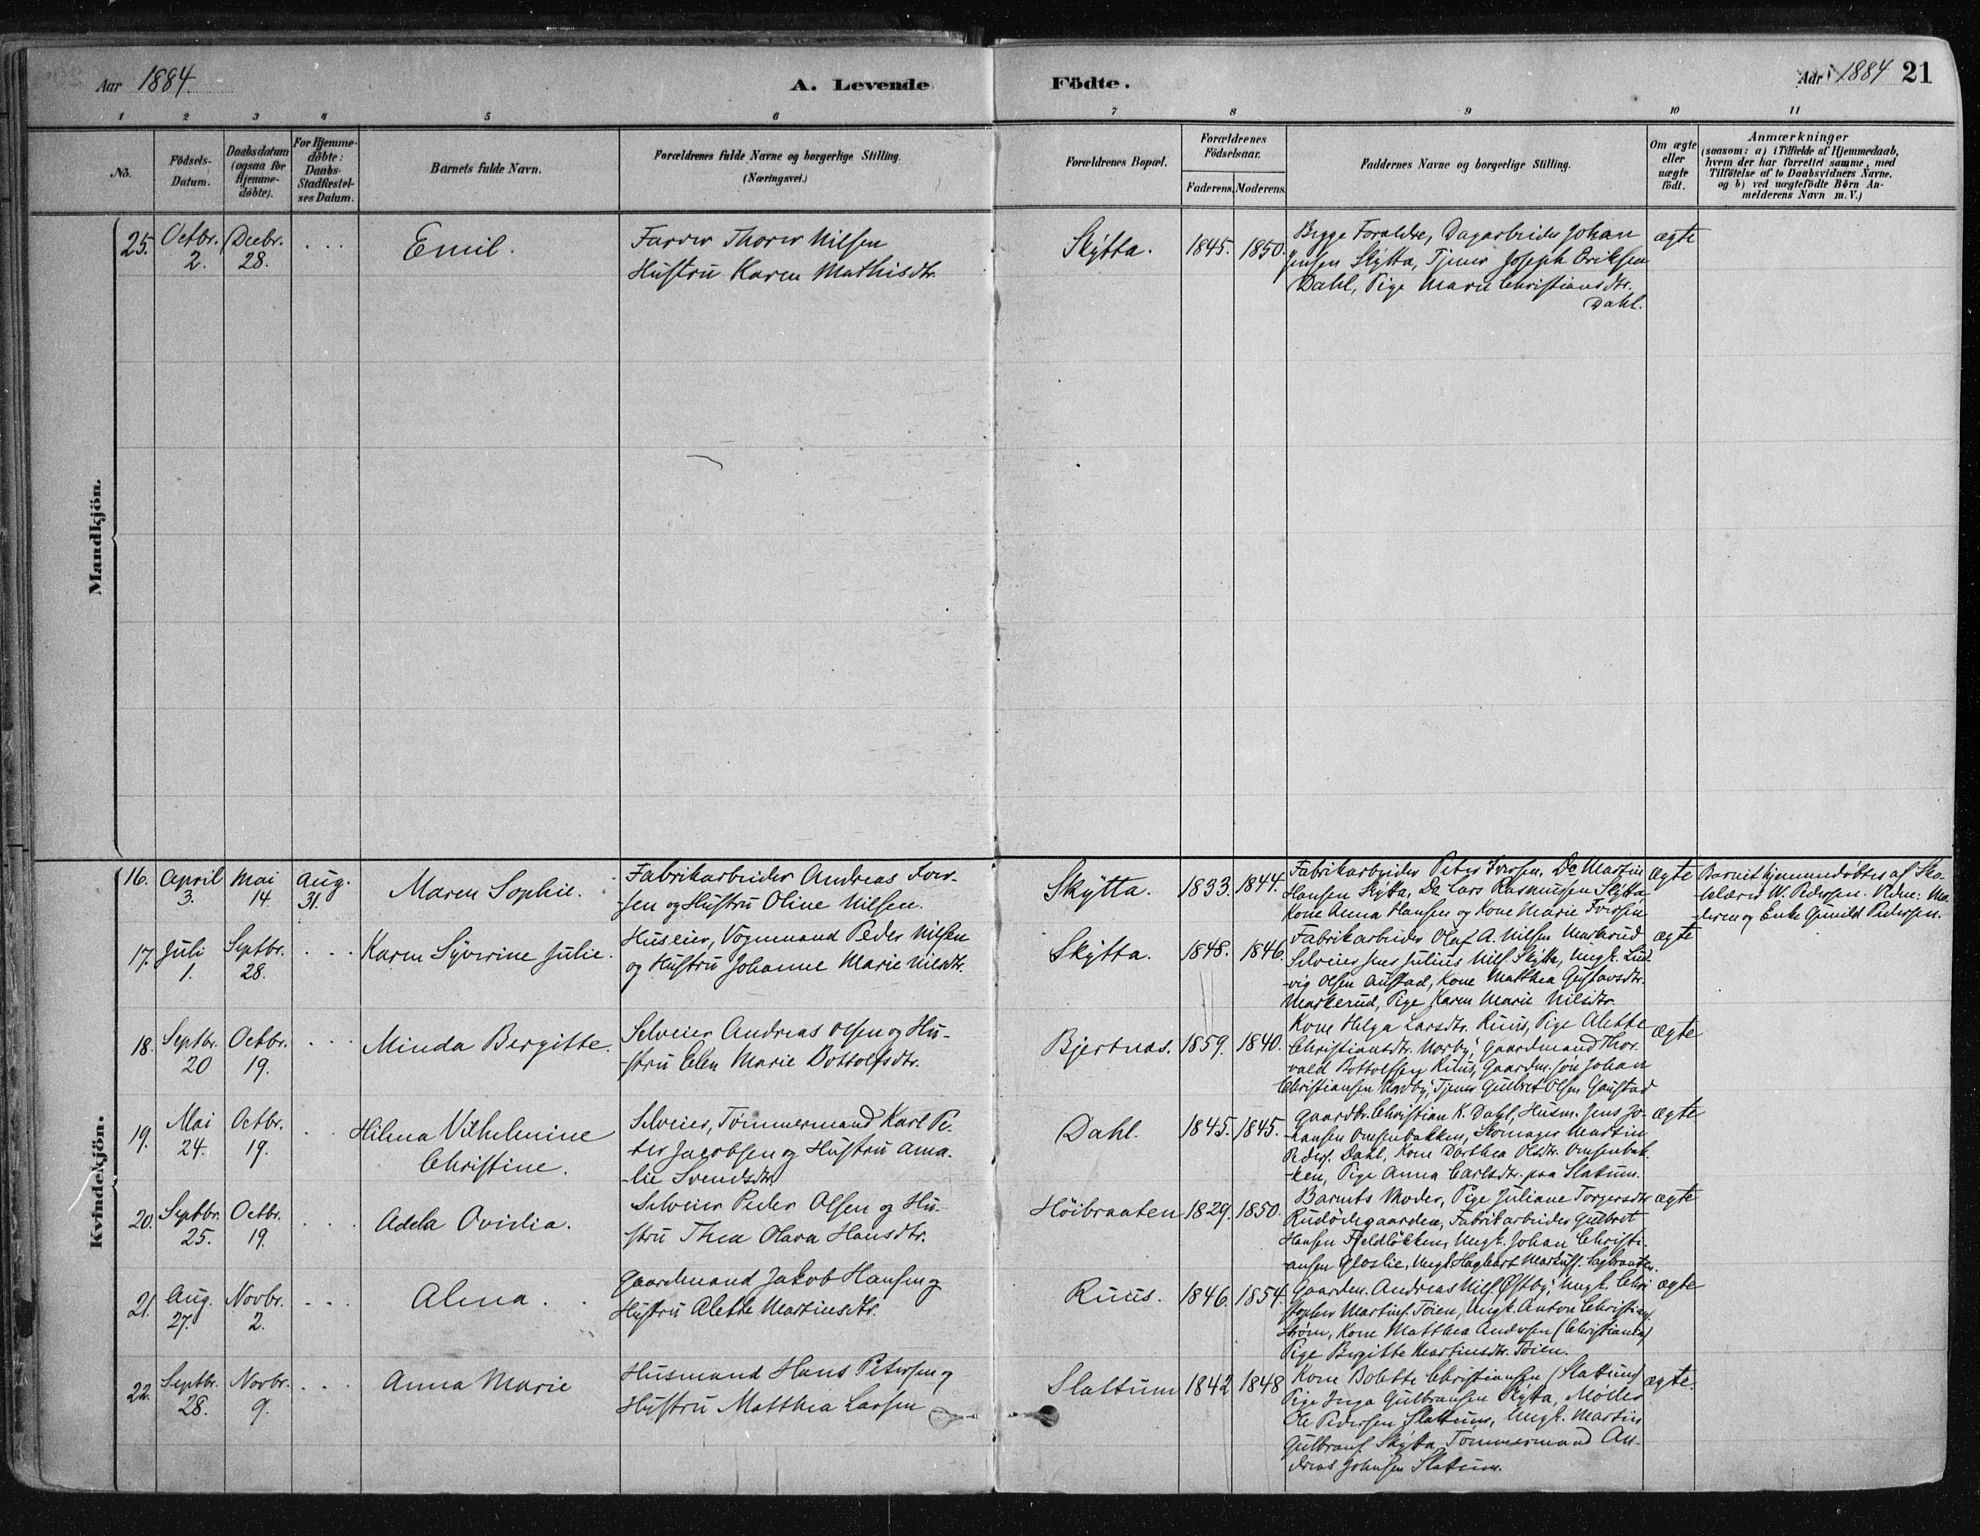 Aar 1884.
A. Levende
Födte.
Aar 1884 21
1 2 3 4 5 6 7 8 9 10 11
No.
Födsels-
Datum.
Daabsdatum
(ogsaa for
Hjemme-
døbte).
For Hjemme-
døbte:
Daabs-
Stadfæstel-
ses Datum.
Barnets fulde Navn.
Forældrenes fulde Navne og borgerlige Stilling.
(Næringsvei.)
Forældrenes Bopæl.
Forældrenes
Födselsaar.
Faderens. Moderens.
Faddernes Navne og borgerlige Stilling.
Om ægte
eller
uægte
født.
Anmærkninger
(saasom: a) i Tilfælde af Hjemmedaab,
hvem der har forrettet samme, med
Tilføielse af to Daabsvidners Navne,
og b) ved uægtefödte Börn An-
melderens Navn m. V.)
Mandkjön.
25. Octbr. 2. Decbr. 28. . . . Emil.
Farver Thorer Nilsen
Hustru Karen Mathisdtr.
Skÿtta. 1845. 1850.
Begge Foraldre, Dagarbeider Johan
Jensen Skÿtta, Tjener Joseph Eriksen
Dahl, Pige Marie Christiansdtr.
Dahl.
ægte
Kvindekjön.
16. April 3. Mai 14 Aug. 31. Maren Sophie.
Fabrikarbeider Andreas Iver-
sen og Hustru Oline Nilsen.
Skÿtta. 1833. 1844.
Fabrikarbeider Peter Iversen, Do Martin
Hansen Skÿtta, Do Lars Rasmussen Skÿtta,
Kone Anna Hansen og Kone Marie Iversen
ægte
Barnet hjemmedøbtes af Sko-
lelærer W. Pedersen. Vidne: Mo-
deren og Enke Gunild Pedersen.
17. Juli 1. Septbr. 28. . . . Karen Sÿverine Julie.
Huseier, Vognmand Peder Nilsen
og Hustru Johanne Marie Nilsdtr.
Skÿtta. 1848. 1846.
Fabrikarbeider Olaf A. Nilsen Markerud
Selveier Jens Julius Nilss. Skÿtta, Ungk. Lud-
vig Olsen Austad, Kone Matthea Gustavsdtr.
Markerud, Pige Karen Marie Nilsdtr.
ægte
18. Septbr. 20 Octbr. 19. . . . Minda Bergitte.
Selveier Andreas Olsen og Hu-
stru Elen Marie Bottolfsdtr.
Bjertnæs. 1859. 1840.
Kone Helga Larsdtr. Ruus, Pige Alette
Christiansdtr. Norby, Gaardmand Thor-
vald Bottolfsen Ruus, Gaardm. søn Johan
Christiansen Norby, Tjener Gulbret Olsen Gaustad
ægte
19. Mai 24. Octbr. 19. . . . Hilma Vilhelmine
Christine.
Selveier, Tømmermand Karl Pe-
ter Jacobsen og Hustru Ama-
lie Svendsdtr.
Dahl. 1845. 1845.
Gaardbr. Christian K. Dahl, Husm. Jens Jo-
hansen Omsenbakken, Skomager Martin
Peders. Dahl, Kone Dorthea Olsdtr. Omsenbak-
ken, Pige Anna Carlsdtr. paa Slatum.
ægte
20. Septbr. 25. Octbr. 19. . . . Adela Ovidia.
Selveier Peder Olsen og Hu-
stru Thea Olava Hansdtr.
Høibraaten 1829. 1850.
Barnets Moder, Pige Juliane Torgersdtr.
Rudödegaarden, Fabrikarbeider Gulbret
Hansen Fjeldløkken, Ungk. Johan Christi-
ansen Gloslie, Ungk. Hagbart Markuss. Sagbraaten.
ægte
21. Aug. 27. Novbr. 2. . . . Alma.
Gaardmand Jakob Hansen og
Hustru Alette Martinsdtr.
Ruus. 1846. 1854.
Gaardm. Andreas Nils. Østby, Ungk. Chri-
stopher Martins. Töien, Ungk. Anton Christians.
Strøm, Kone Matthea Andersen (Christiania)
Pige Bergitte Martinsdtr. Töien.
ægte
22. Septbr. 28. Novbr. 9. . . . Anna Marie
Husmand Hans Petersen og
Hustru Matthea Larsen
Slattum 1842 1848
Kone Bolette Christiansen (Slattum)
Pige Inga Gulbransen Skÿtta, Møller
Ole Pedersen Slattum, Ungk. Martin
Gulbrans. Skÿtta, Tömmermand An-
dreas Johnsen Slatum.
ægte.